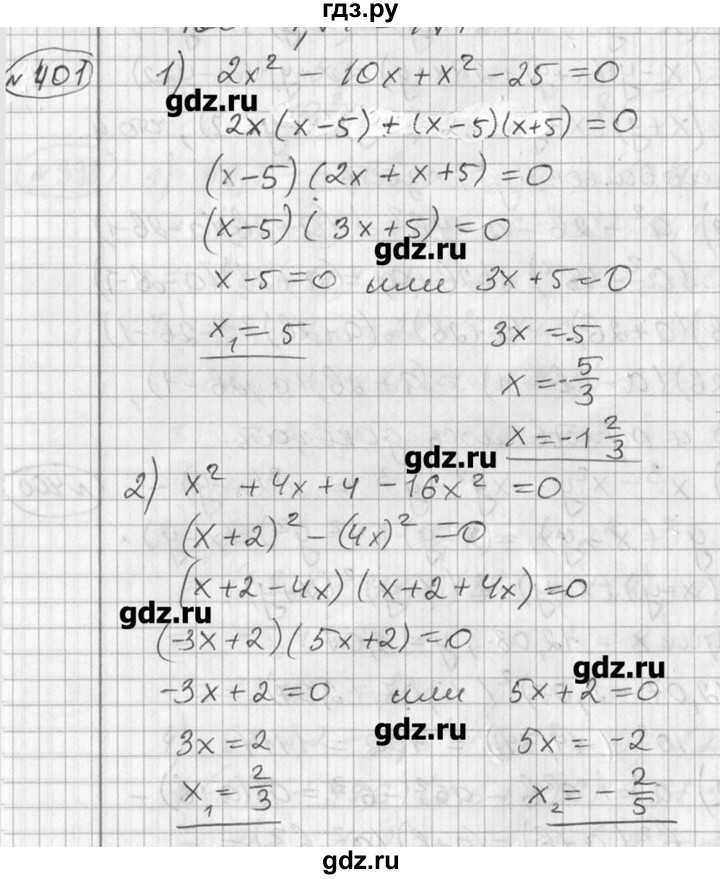 гдз.ру
№ 401
1) 2x² - 10x + x² - 25 = 0
gdz.ru
2x(x-5) + (x-5)(x+5) = 0
(x-5)(2x + x + 5) = 0
(x-5)(3x+5) = 0
gdz.ru
x - 5 = 0 или 3x + 5 = 0
x₁ = 5 3x = -5
x = -5/3
x = -1 2/3
gdz.ru
2) x² + 4x + 4 - 16x² = 0
(x+2)² - (4x)² = 0
(x+2-4x)(x+2+4x) = 0
gdz.ru
(-3x+2)(5x+2) = 0
gdz.ru
-3x+2 = 0 или 5x+2 = 0
gdz.ru
3x = 2 5x = -2
x₁ = 2/3 x₂ = -2/5
gdz.ru